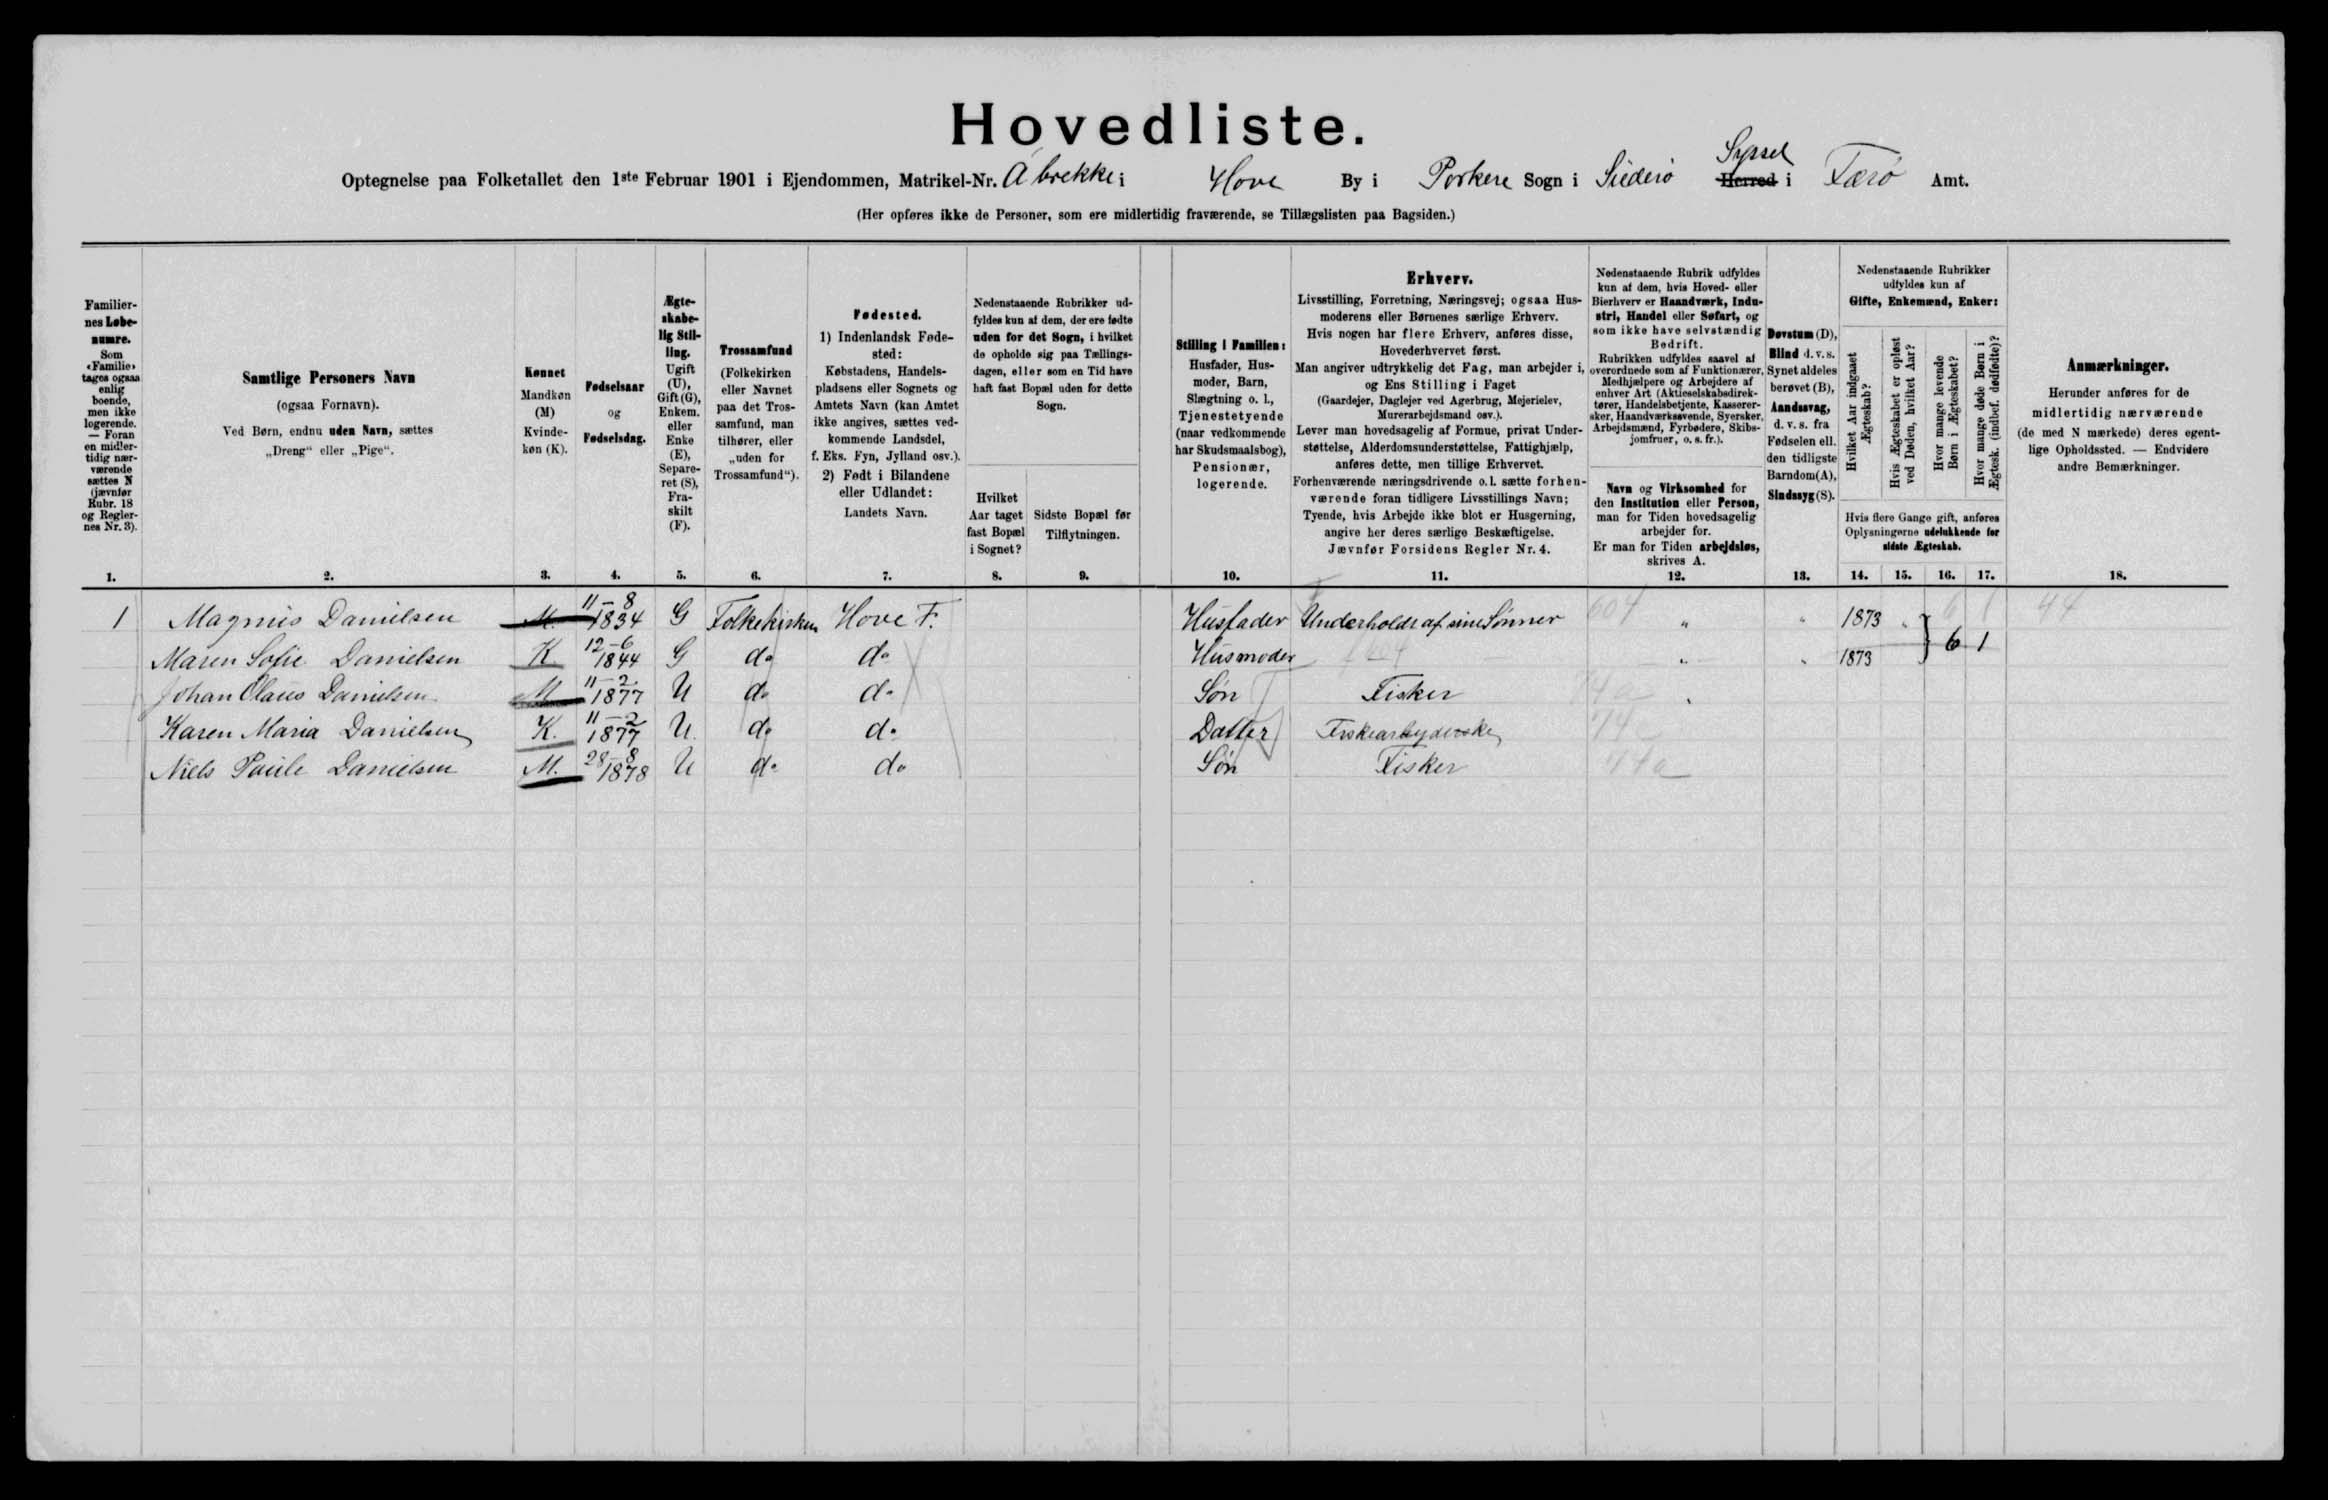 Hovedliste.
Optegnelse paa Folketallet den 1ste Februar 1901 i Ejendommen, Matrikel-Nr. Åbrekke i Hove By i Porkere Sogn i Süderø Herred Syssel i Færø Amt.
(Her opføres ikke de Personer, som ere midlertidig fraværende, se Tillægslisten paa Bagsiden.)
Familiernes Løbenumre.
Som «Familie» tages ogsaa enlig boende, men ikke logerende. — Foran en midlertidig nærværende sættes N (jævnfør Rubr. 18 og Reglernes Nr. 3).
Samtlige Personers Navn
(ogsaa Fornavn).
Ved Børn, endnu uden Navn, sættes
„Dreng" eller „Pige".
Kønnet
Mandkøn (M)
Kvindekøn (K).
Fødselsaar
og
Fødselsdag.
Ægteskabelig Stilling.
Ugift (U), Gift (G), Enkem. eller Enke (E), Separeret (S), Fraskilt (F).
Trossamfund
(Folkekirken eller Navnet paa det Trossamfund, man tilhører, eller „uden for Trossamfund").
Fødested.
1) Indenlandsk Fødested:
Købstadens, Handelspladsens eller Sognets og Amtets Navn (kan Amtet ikke angives, sættes vedkommende Landsdel, f. Eks. Fyn, Jylland osv.).
2) Født i Bilandene eller Udlandet:
Landets Navn.
Nedenstaaende Rubrikker udfyldes kun af dem, der ere fødte uden for det Sogn, i hvilket de opholde sig paa Tællingsdagen, eller som en Tid have haft fast Bopæl uden for dette Sogn.
Hvilket Aar taget fast Bopæl i Sognet?
Sidste Bopæl før Tilflytningen.
Stilling i Familien:
Husfader, Husmoder, Barn, Slægtning o. l., Tjenestetyende (naar vedkommende har Skudsmaalsbog), Pensionær, logerende.
Erhverv.
Livsstilling, Forretning, Næringsvej; ogsaa Husmoderens eller Børnenes særlige Erhverv.
Hvis nogen har flere Erhverv, anføres disse, Hovederhvervet først.
Man angiver udtrykkelig det Fag, man arbejder i, og Ens Stilling i Faget
(Gaardejer, Daglejer ved Agerbrug, Mejerielev, Murerarbejdsmand osv.).
Lever man hovedsagelig af Formue, privat Understøttelse, Alderdomsunderstøttelse, Fattighjælp, anføres dette, men tillige Erhvervet.
Forhenværende næringsdrivende o. l. sætte forhenværende foran tidligere Livsstillings Navn;
Tyende, hvis Arbejde ikke blot er Husgerning, angive her deres særlige Beskæftigelse.
Jævnfør Forsidens Regler Nr. 4.
Nedenstaaende Rubrik udfyldes kun af dem, hvis Hoved- eller Bierhverv er Haandværk, Industri, Handel eller Søfart, og som ikke have selvstændig Bedrift.
Rubrikken udfyldes saavel af overordnede som af Funktionærer, Medhjælpere og Arbejdere af enhver Art (Aktieselskabsdirektører, Handelsbetjente, Kassererske, Haandværkssvende, Syersker, Arbejdsmænd, Fyrbødere, Skibsjomfruer, o. s. fr.).
Navn og Virksomhed for den Institution eller Person, man for Tiden hovedsagelig arbejder for.
Er man for Tiden arbejdsløs, skrives A.
Døvstum (D), Blind d. v. s. Synet aldeles berøvet (B), Aandssvag, d. v. s. fra Fødselen ell. den tidligste Barndom (A), Sindssyg (S).
Nedenstaaende Rubrikker udfyldes kun af
Gifte, Enkemænd, Enker:
Hvilket Aar indgaaet Ægteskab?
Hvis Ægteskabet er opløst ved Døden, hvilket Aar?
Hvor mange levende Børn i Ægteskabet?
Hvor mange døde Børn i Ægtesk. (indbef. dødfødte)?
Hvis flere Gange gift, anføres Oplysningerne udelukkende for sidste Ægteskab.
Anmærkninger.
Herunder anføres for de midlertidig nærværende (de med N mærkede) deres egentlige Opholdssted. — Endvidere andre Bemærkninger.
1. 2. 3. 4. 5. 6. 7. 8. 9. 10. 11. 12. 13. 14. 15. 16. 17. 18.
1 Magnus Danielsen M. 11-8 1834 G Folkekirken Hove F. Husfader Underholdt af sine Sønner 604 " " 1873 " 6 1 44
Maren Sofie Danielsen K. 12-6 1844 G do do Husmoder " " 1873 } 6 1
Johan Claus Danielsen M 11-2 1877 U do do Søn Fisker 74a
Karen Maria Danielsen K. 11-2 1877 U. do do Datter Fiskearbejderske 74
Niels Paule Danielsen M. 28-8 1878 U do do Søn Fisker 74a